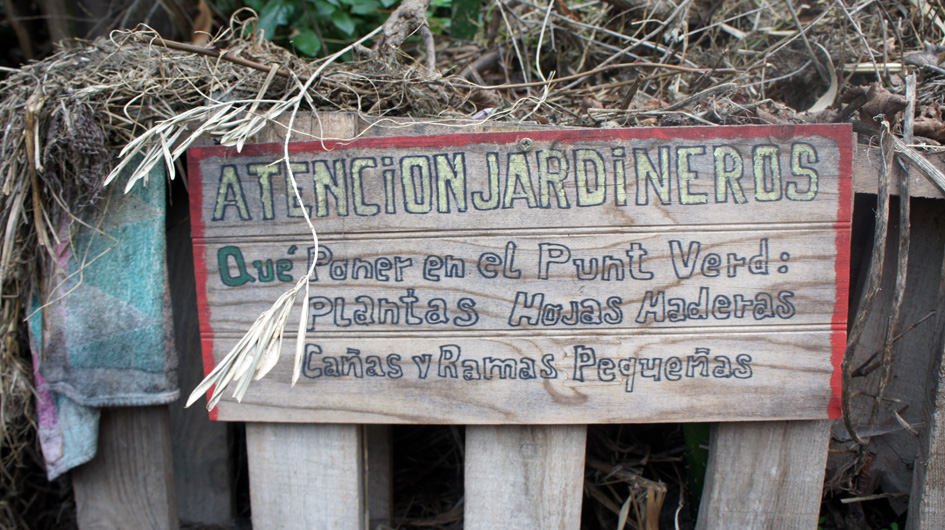 ATENCiON JARDiNEROS
Qué Poner en el Punt Verd:
Plantas Hojas Maderas
Cañas y Ramas Pequeñas